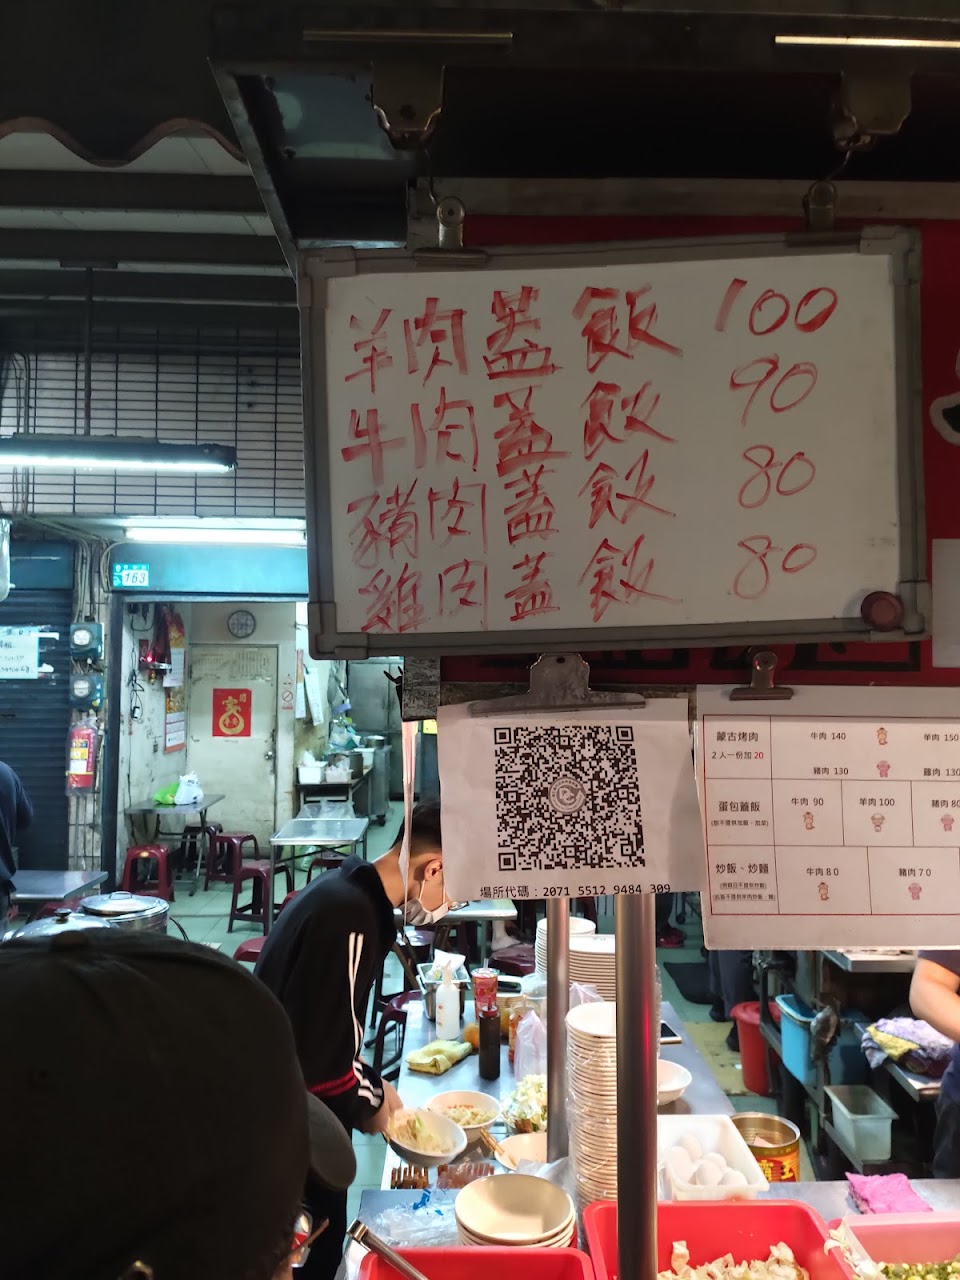 羊肉蓋飯 100
牛肉蓋飯 90
豬肉蓋飯 80
雞肉蓋飯 80
163
場所代碼：2071 5512 9484 309
蒙古烤肉 牛肉 140 羊肉 150
2人一份加 20
豬肉 130 雞肉 130
蛋包蓋飯 牛肉 90 羊肉 100 豬肉 80
炒飯、炒麵 牛肉 80 豬肉 70